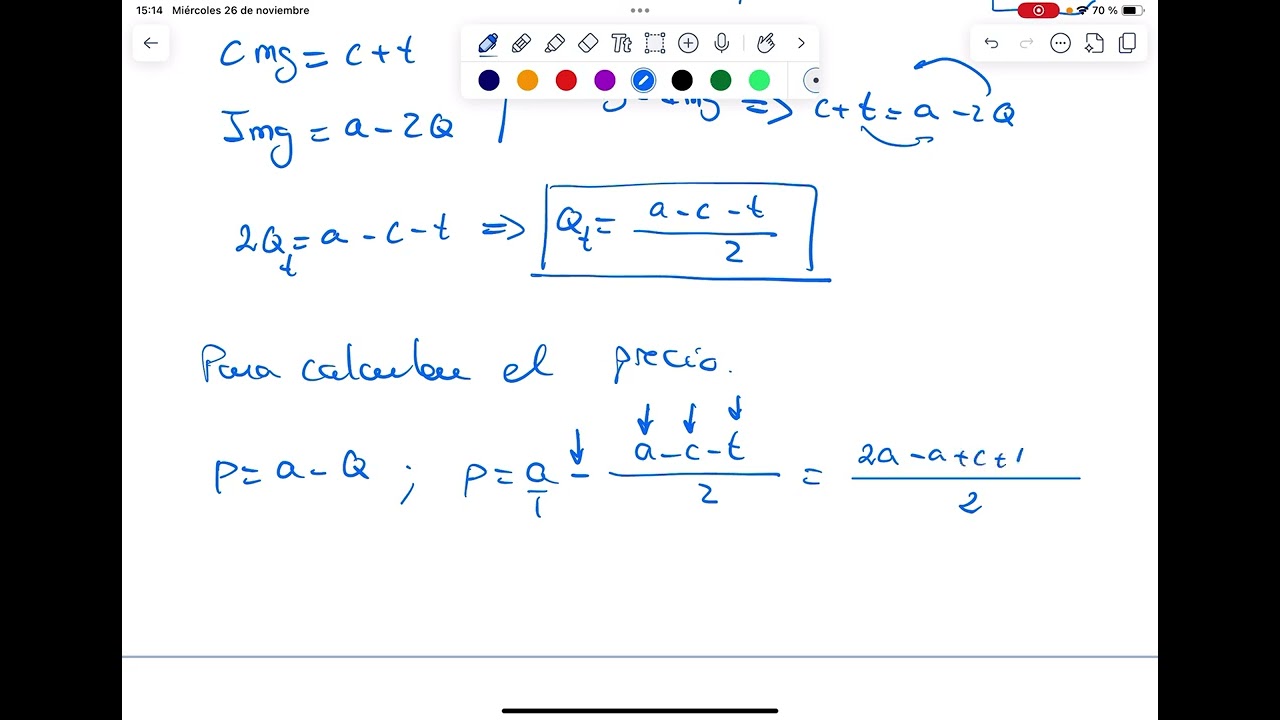 15:14 Miércoles 26 de noviembre
70 %
Tt
Cmg = c + t
Img = a - 2Q
=> c + t = a - 2Q
2Qt = a - c - t => Qt = (a - c - t)/2
Para calcular el precio.
P = a - Q ; P = a/1 - (a - c - t)/2 = (2a - a + c + /2